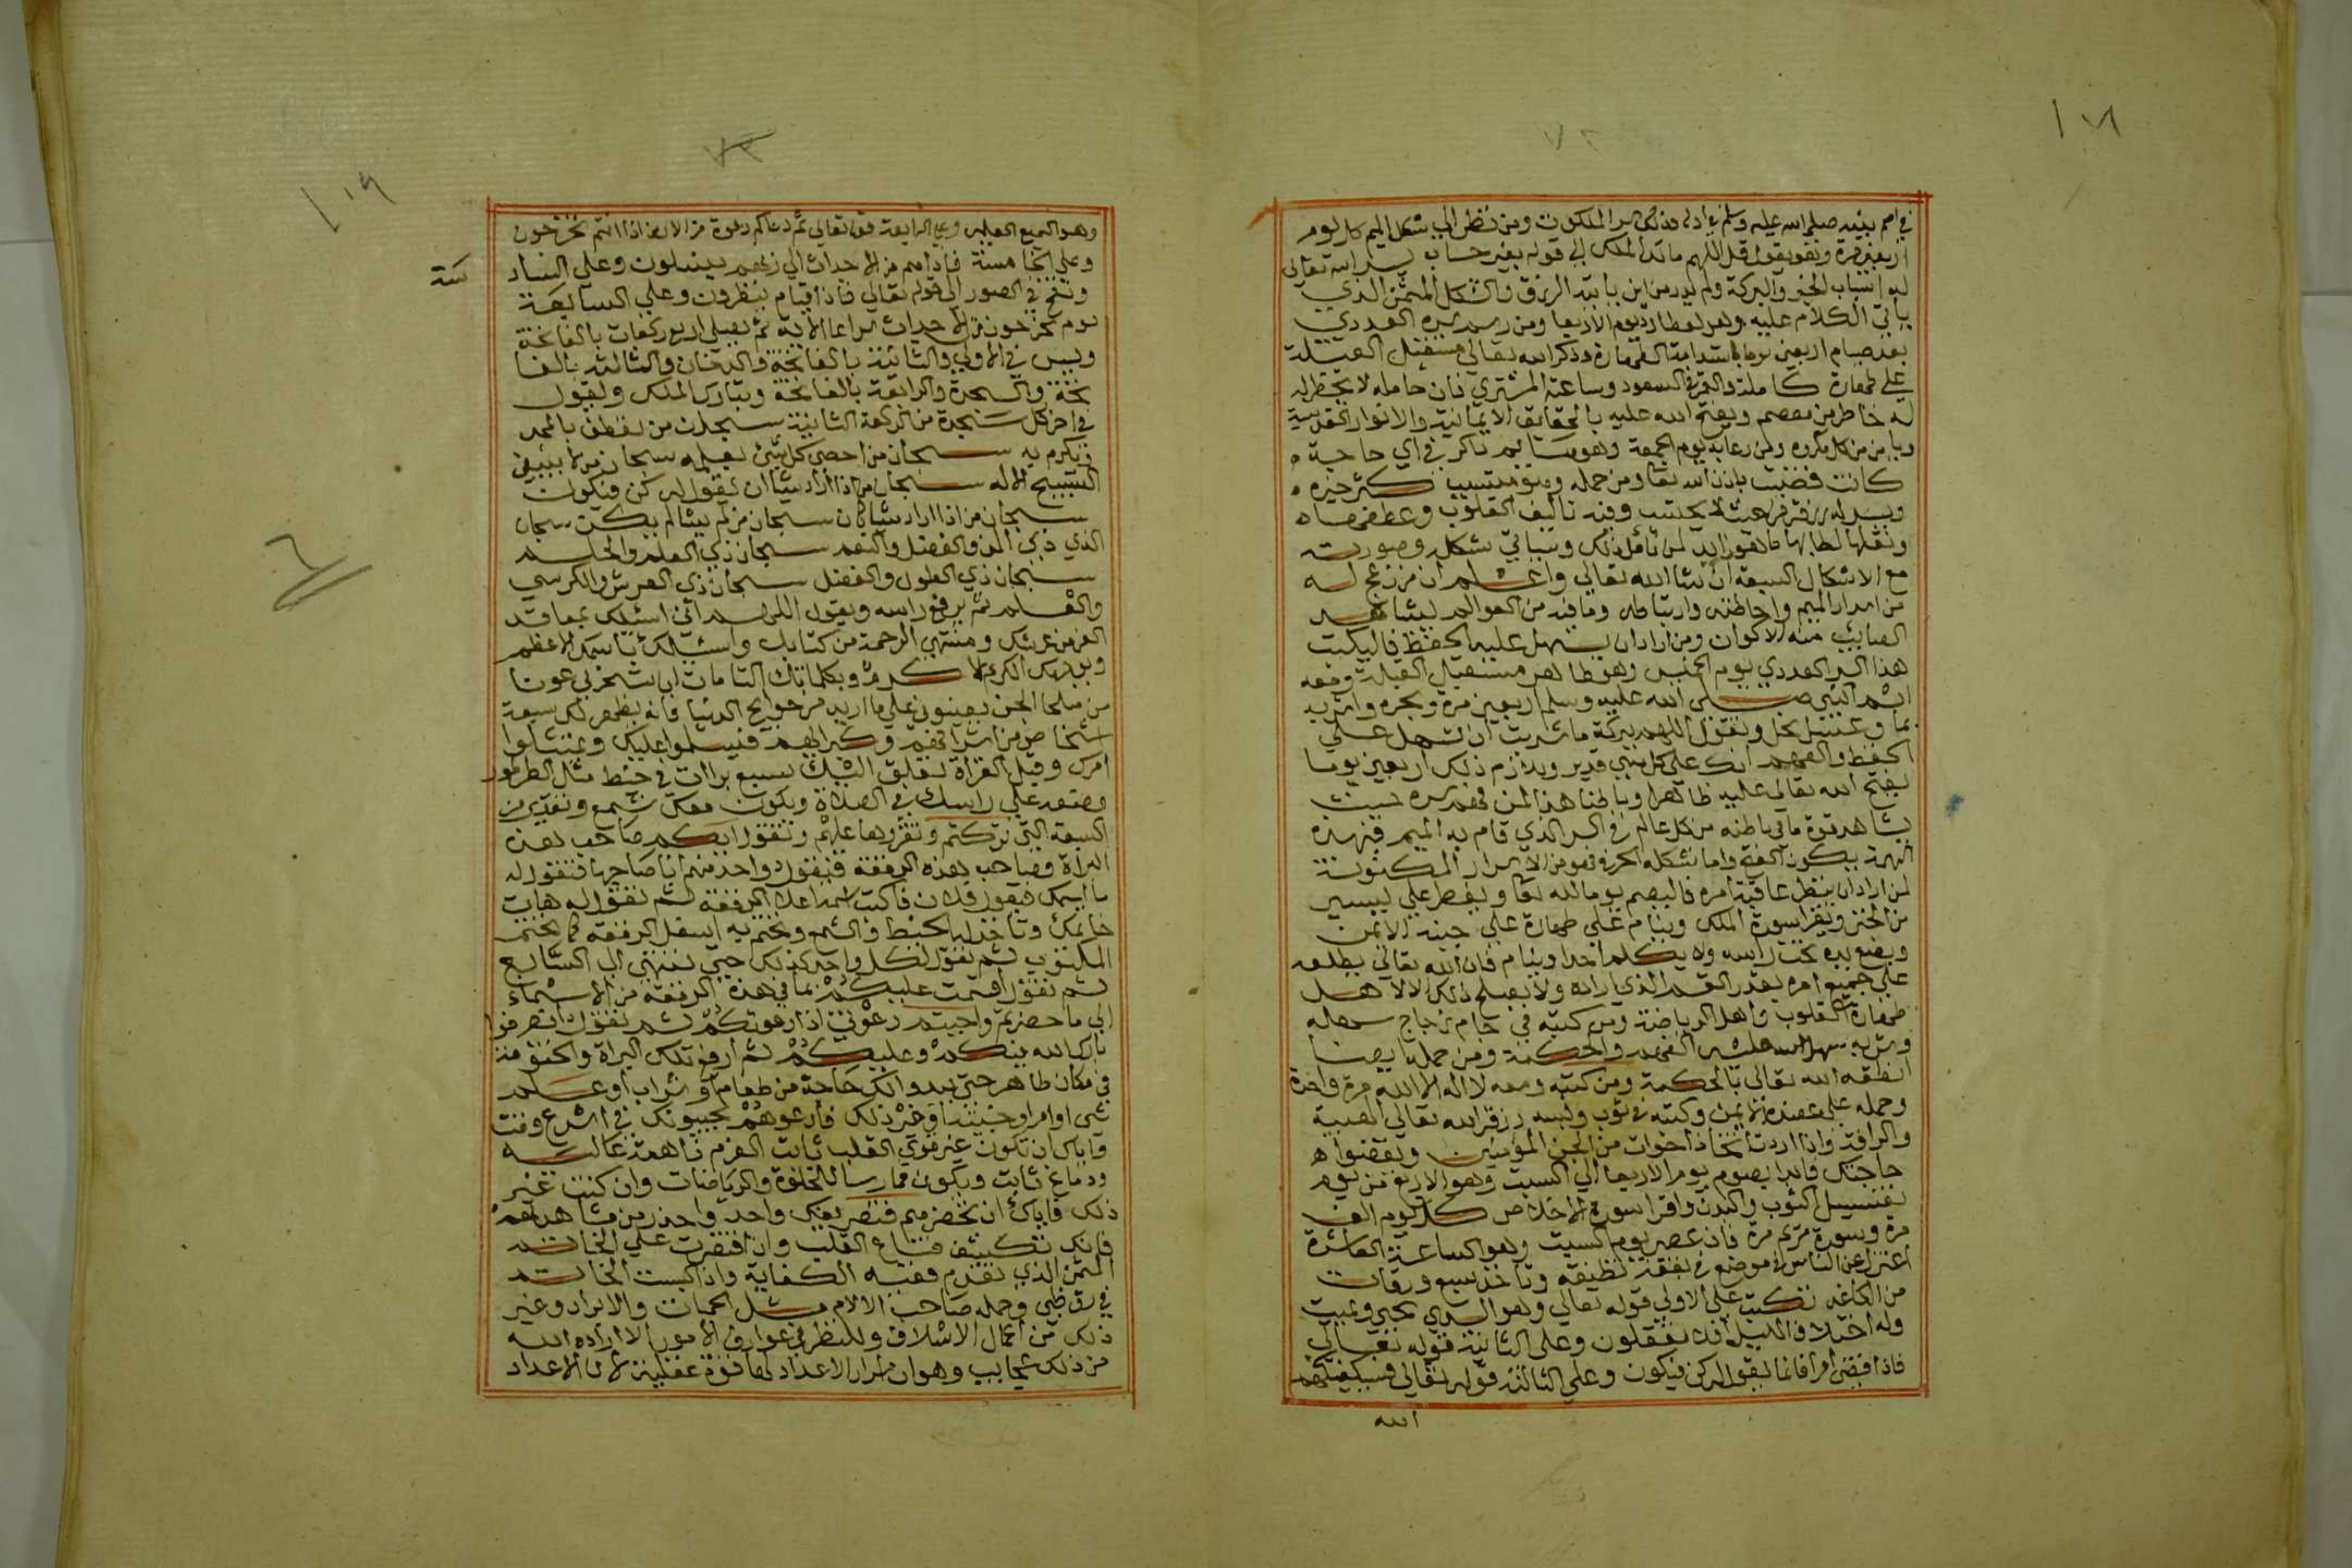 ١٧١
٧٢
في اسم نبيه صلي الله عليه وسلم في ادله وذلك سر الملكوت ومن نظر الي شكل الميم كل يوم
اربعين مرة وهو يقول قل اللهم مالك الملك الي قوله بغير حساب يسر الله تعالي
له اسباب الخير والبركة ولم يدر من اين ياتيه الرزق والشكل المثمن الذي
ياتي الكلام عليه وهو لعطارد يوم الاربعا ومن رسم سره العددي
بعد صيام اربعين يوما باستدامة الطهارة وذكر الله تعالي مستقبل القبلة
علي طهارة كاملة والقمر في السعود وساعة المشتري فان حامله لا يخطر له
له خاطر من معصية ويفتح الله عليه بالحقايق الايمانية والانوار القدسية
ويامن من كل مكروه ومن دعا به يوم الجمعة وهو صايم ذاكر في اي حاجة
كانت قضيت باذن الله تعا ومن حمله وهو متسبب كثر خيره
ويسر له رزقه من حيث لا يحتسب وفيه تاليف القلوب وعطفها
ونقلها لطالبها ما لفوايد لمن تامل ذلك وسياتي شكله وصورته
مع الاشكال السبعة ان شا الله تعالي واعلم ان من نزعج له
من امداد الميم واحاطته وارتباطه وما فيه من العوالم ليشاهد
العجايب منه الاكوان ومن اراد ان يسهل عليه الحفظ فاليكتب
هذا السر العددي يوم الخميس وهو طاهر مستقبل القبلة ومعه
اسم النبي صلي الله عليه وسلم اربعين مرة وبخره واشربه
بما وعسل نحل وتقول اللهم ببركة ما شربت ان تسهل علي
الحفظ والفهم انك علي كل شي قدير ويلازم ذلك اربعين يوما
يفتح الله تعالي عليه ظاهرا وباطنا هذا لمن فهم سره حيث
يشاهد قوة ما في باطنه من كل عالم في السر الذي قام به الميم فبهذه
يكون الفتح واما شكله الحرفي فهو من الاسرار المكنونة
لمن اراد ان ينظر عاقبة امره فاليصم يوما لله تعا ويفطر علي يسير
من الخبز ويقرا سورة الملك وينام علي طهارة علي جنبه الايمن
ويضع يده تحت راسه ولا يكلم احدا وينام فان الله تعالي يطلعه
علي جميع امره بقدر القسم الذي اراده ولا يصلح ذلك الا لاهل
طهارة القلوب واهل الرياضة ومن كتبه في جام زجاج
وشربه سهل الله عليه الفهم والحكمة ومن حمله ايضا
انطقه الله تعالي بالحكمة ومن كتبه ومعه لا اله الا الله مرة واحدة
وحمله علي عضده الايمن وكتبه في ثوب ولبسه رزقه الله تعالي الهيبة
والرافة واذا اردت اتخاذ اخوات من الجن المؤمنين ويقضوا
حاجتك فابدا بصوم يوم الاربعا الي السبت وهو الاربع من يوم
تغسيل الثوب والبدن واقرا سورة الاخلاص كل يوم الف
مرة وسورة مريم مرة فاذا عصر يوم السبت وهو الساعة العاشرة
اعتزل عن الناس في موضع في بقعة نظيفة وتاخذ سبع ورقات
من الكاغد تكتب علي الاولي قوله تعالي وهو الذي يحيي ويميت
وله اختلاف الليل افلا تعقلون وعلي الثانية قوله تعالي
فاذا قضي امرا فانما يقول له كن فيكون وعلي الثالثة قوله تعالي فسيكفيكهم
الله
١٦٩
٧٣
وهو السميع العليم وعلي الرابعة قوله تعالي ثم دعاكم دعوة من الارض اذا انتم تخرجون
وعلي الخامسة فاذا هم من الاجداث الي ربهم ينسلون وعلي السادسة
ونفخ في الصور الي قوله تعالي فاذا قيام ينظرون وعلي السابعة
يوم يخرجون من الاجداث سراعا الاية ثم يصلي اربع ركعات بالفاتحة
ويس في الاولي والثانية بالفاتحة والدخان والثالثة بالفا
تحة والسجدة والرابعة بالفاتحة وتبارك الملك ويقول
في اخر كل سجدة من الركعة الثانية سبحان من تعطف بالمجد
وتكرم به سبحان من احصي كل شي بعلمه سبحان من لا ينبغي
التسبيح الا له سبحان من اذا اراد شيا ان يقول له كن فيكون
سبحان من اذا اراد شيا كان سبحان من لم يشا لم يكن سبحان
الذي ذي المن والفضل والنعم سبحان ذي العلم والحلم
سبحان ذي الطول والفضل سبحان ذي العرش والكرسي
والقلم ثم يرفع راسه ويقول اللهم اني اسئلك بمعاقد
العز من عرشك ومنتهي الرحمة من كتابك واسئلك باسمك الاعظم
وبوجهك الكريم الاكرم وبكلماتك التامات ان تسخر لي عونا
من صلحا الجن يعينوني علي ما اريد من حوايج الدنيا فانه يظهر لك سبعة
اشخاص من اشرافهم وكبرايهم فيسلموا عليك ويمتثلوا
امرك وقبل القراة تعلق السبع براات في خيط مثل الطرطور
وتضعه علي راسك في الصلاة ويكون معك شمع وتقدم من
السبعة التي تركتم وتقروها عليهم وتقول ايكم صاحب هذه
البراة وصاحب هذه الرقعة فيقول واحد منهم انا صاحبها فتقول له
ما اسمك فيقول فلان فاكتب اسمه اعلا الرقعة ثم تقول له هات
خاتمك وتاخذ له الخيط والشمع وتختم به اسفل الرقعة كما يختم
المكتوب ثم تقول لكل واحد كذلك حتي تنتهي الي السابع
ثم تقول اقسمت عليكم بما في هذه الرقعة من الاسماء
الي ما حضرتم واجبتم دعوتي اذا دعوتكم ثم تقول انصرفوا
بارك الله فيكم وعليكم ثم ارفع تلك البراة واحتفظ منه
في مكان طاهر حتي يبدوا لك حاجة من طعام او شراب او علم
شي او امر او خبيئة او غير ذلك فادعوهم يجيبونك في اسرع وقت
واياك ان تكون غير قوي القلب ثابت العزم ذا همة عالية
ودماغ ثابت ويكون ممارسا للخلوة والرياضات وان كنت غير
ذلك فاياك ان تحضرهم فتضر بنفسك واحذر واحذر من مشاهدتهم
فانك تكشف قناع القلب وان اقتصرت علي الخاتم
المثمن الذي تقدم ففيه الكفاية واذا كتبت الخاتم
في رق ظبي وحمله صاحب الالام مثل الحميات والابراد وغير
ذلك من اعمال الاسلاف وللنظر في عوارف الامور الا اراده الله
من ذلك عجايب وهو ان اسرار الاعداد لها قوة عقلية لان الاعداد